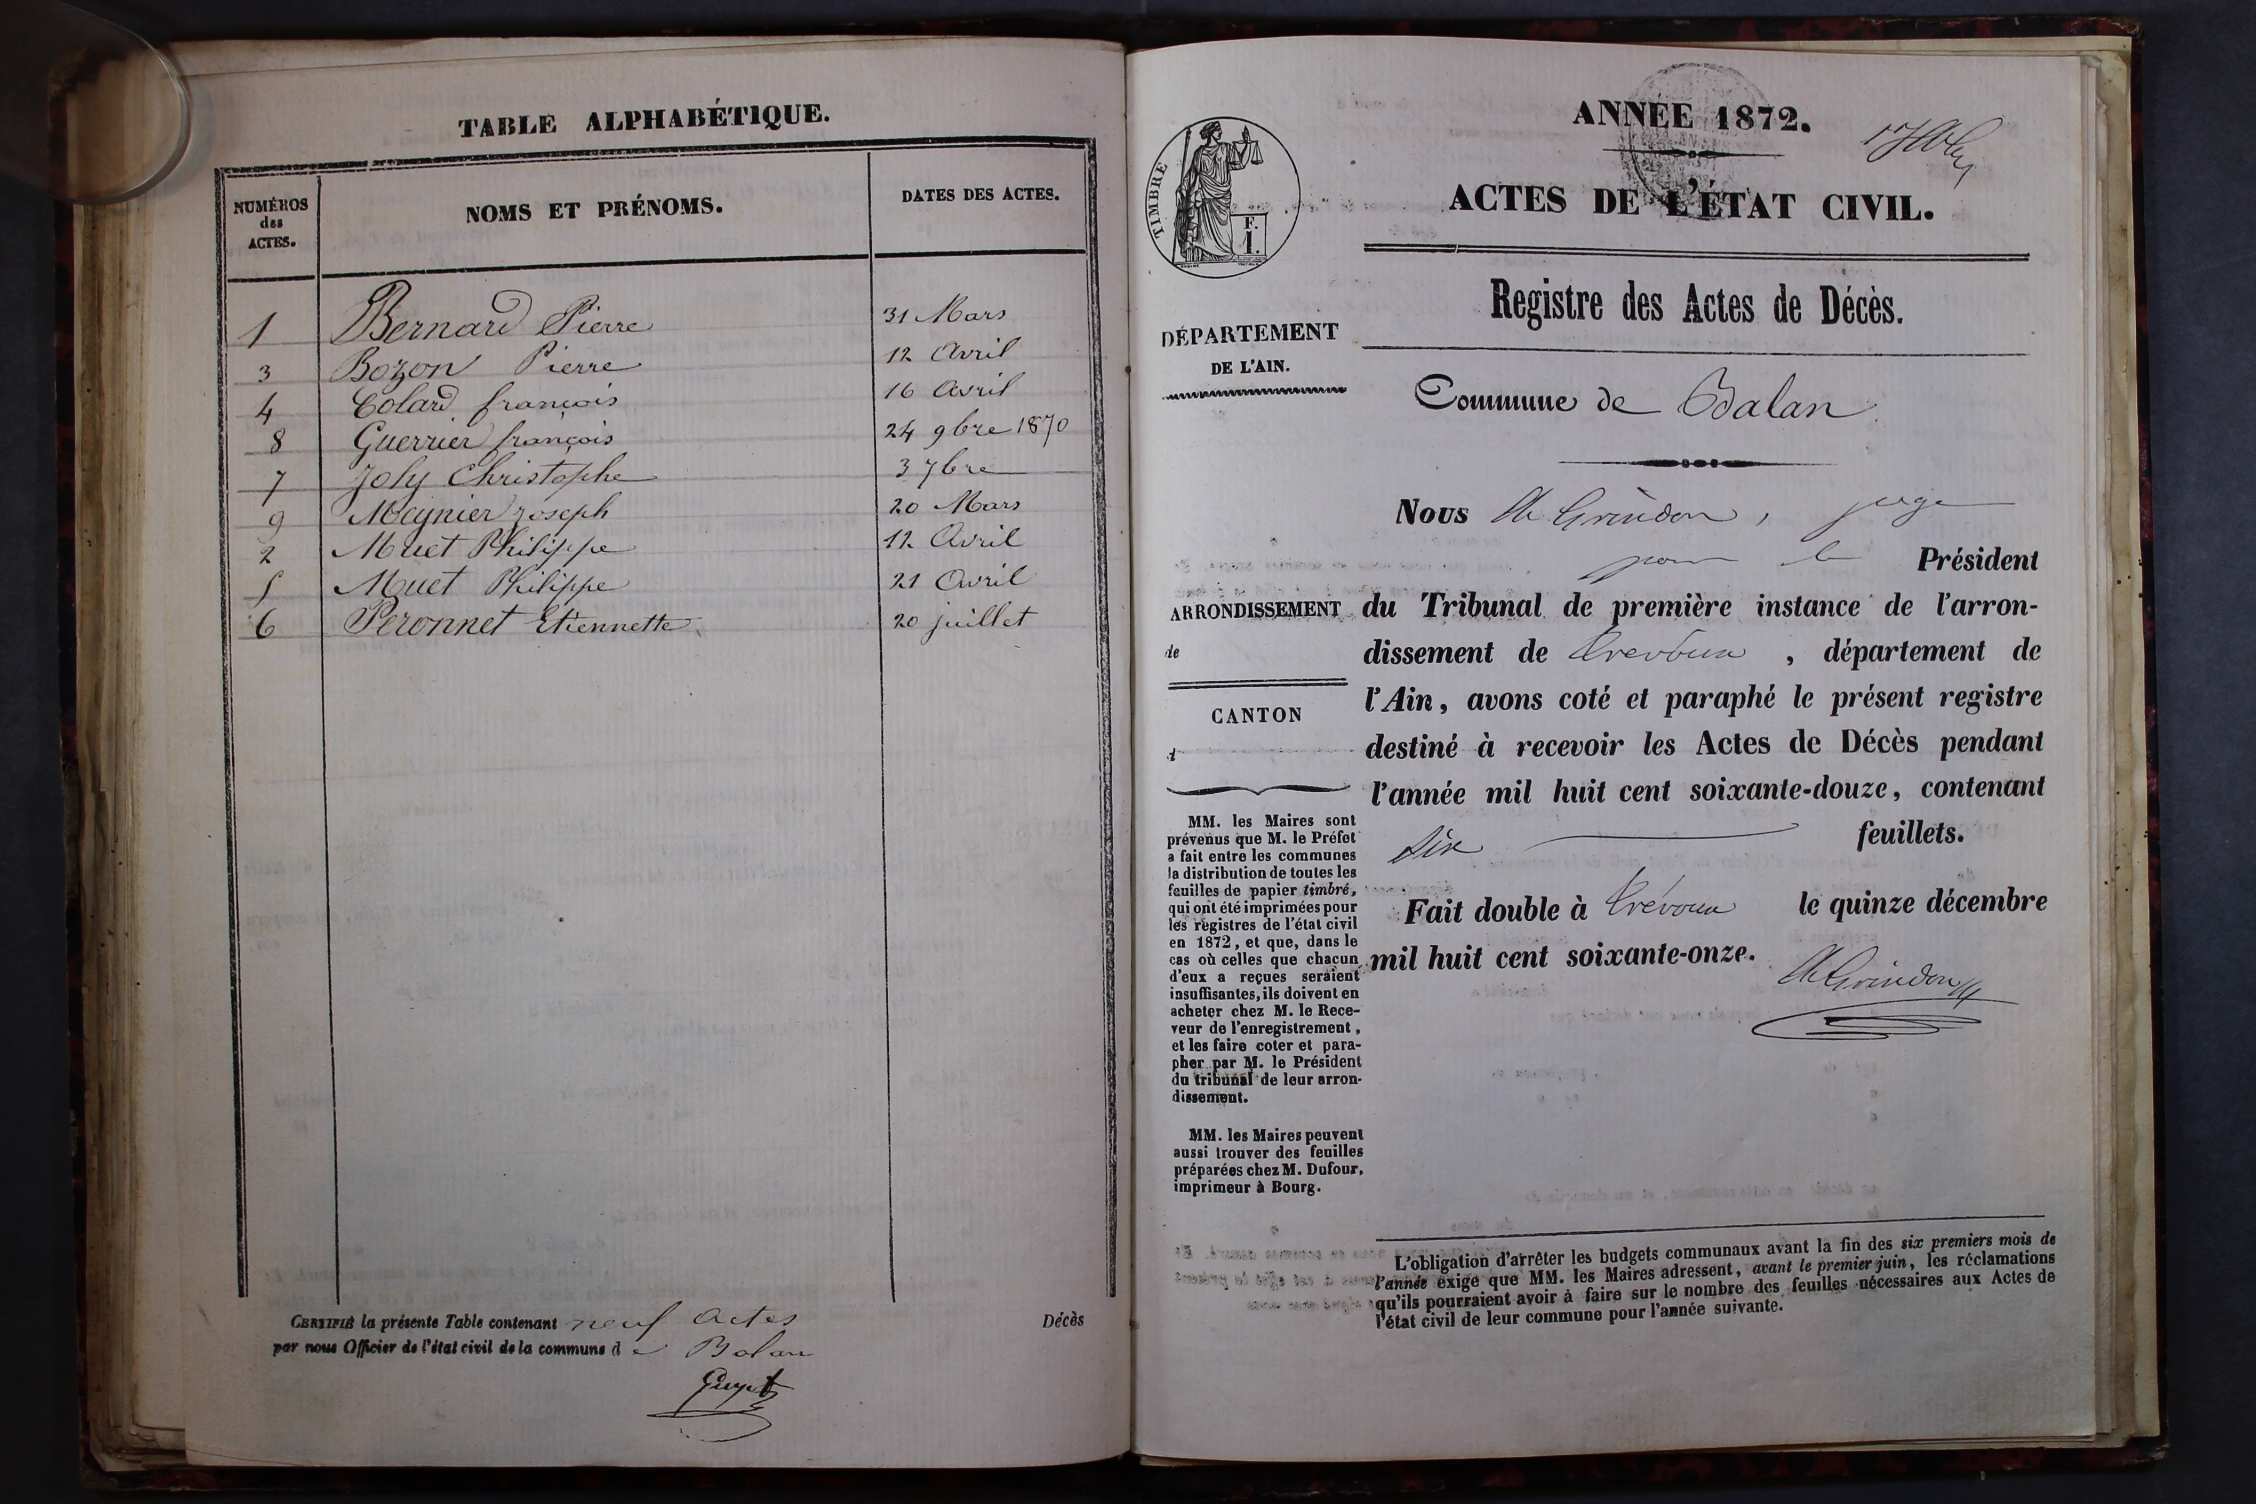 TABLE ALPHABÉTIQUE.
NUMÉROS des ACTES. NOMS ET PRÉNOMS. DATES DES ACTES.
1 Bernard Pierre 31 Mars
3 Bozon Pierre 12 Avril
4 Colard françois 16 Avril
8 Guerrier françois 24 9bre 1870
7 Joly Christophe 3 7bre
9 Meynier joseph 20 Mars
2 Muet Philippe 12 Avril
5 Muet Philippe 21 Avril
6 Peronnet Etiennette 20 juillet
CERTIFIÉ la présente Table contenant neuf actes Décès
par nous Officier de l'état civil de la commune de Balan
ANNÉE 1872.
ACTES DE L'ÉTAT CIVIL.
TIMBRE
F.
1.
Registre des Actes de Décès.
DÉPARTEMENT
DE L'AIN.
Commune de Balan
Nous Grindon, juge
pour le Président
ARRONDISSEMENT
de
CANTON
d
du Tribunal de première instance de l'arron-
dissement de Trevoux, département de
l'Ain, avons coté et paraphé le présent registre
destiné à recevoir les Actes de Décès pendant
l'année mil huit cent soixante-douze, contenant
six feuillets.
Fait double à Trévoux le quinze décembre
mil huit cent soixante-onze.
Grindon
MM. les Maires sont
prévenus que M. le Préfet
a fait entre les communes
la distribution de toutes les
feuilles de papier timbré,
qui ont été imprimées pour
les registres de l'état civil
en 1872, et que, dans le
cas où celles que chacun
d'eux a reçues seraient
insuffisantes, ils doivent en
acheter chez M. le Rece-
veur de l'enregistrement,
et les faire coter et para-
pher par M. le Président
du tribunal de leur arron-
dissement.
MM. les Maires peuvent
aussi trouver des feuilles
préparées chez M. Dufour,
imprimeur à Bourg.
L'obligation d'arrêter les budgets communaux avant la fin des six premiers mois de
l'année exige que MM. les Maires adressent, avant le premier juin, les réclamations
qu'ils pourraient avoir à faire sur le nombre des feuilles nécessaires aux Actes de
l'état civil de leur commune pour l'année suivante.